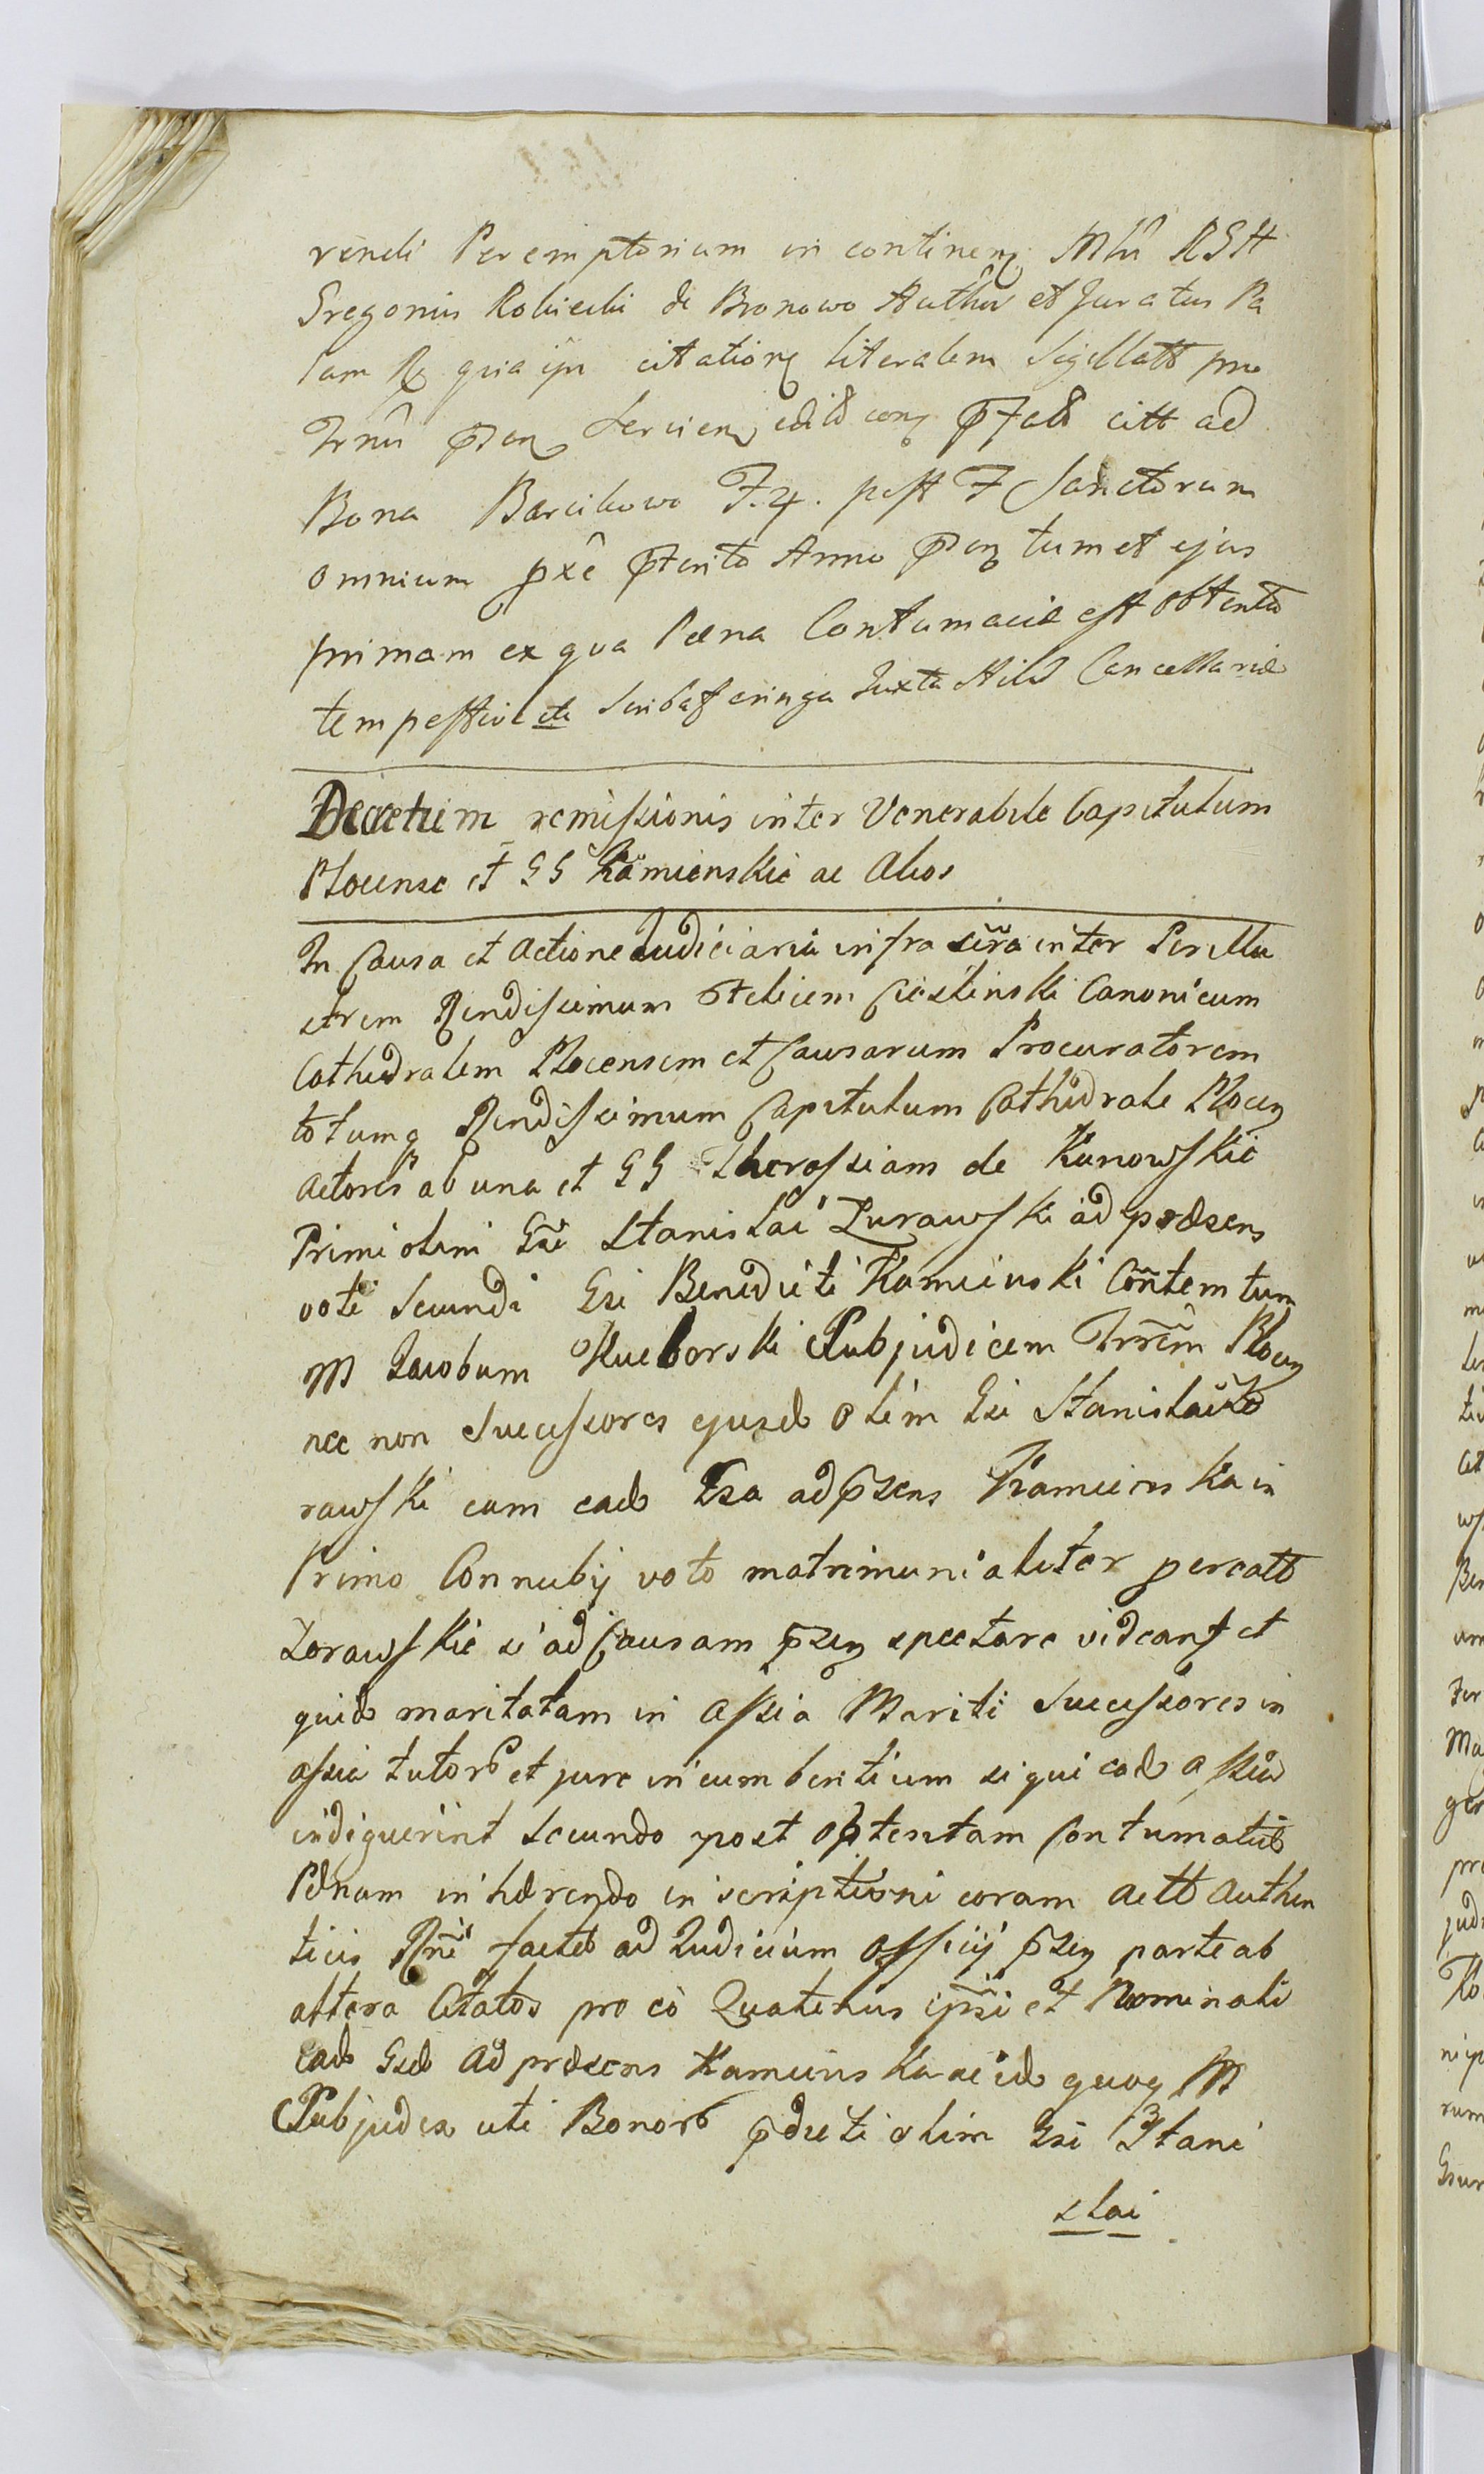 rendi Peremptorium in continen Mln RSH
Gregorius Robiecki de Bronowo Author et Juratus Pa
lam R quia ipse citatione literalem Sigillatt pro
Trno psen servien edid con pfatt citt ad
Bona Barcikowo F. 4. post F Sanctorum
omnium pxe pterito Anno psen tum et ejus
primam ex qua Pæna Contumaciæ est obtenta
tempestive etc Juxta Stil Cancellariæ
Decretum remissionis inter Venerabile Capitulum
Plocense et GG Kamienskie ac Alios
In Causa et Actione Judiciaria infra scra inter Perillu
strem Rendissimum Felicem Cieslinski Canonicum
Cathedralem Plocensem et Causarum Procuratorem
totumq Rendissimum Capitulum Cathedrale Plocen
Actores ab una et GG Therossiam de Kanowskie
Primi olim Gsi Stanislai Zurawski ad præsens
voti Secundi Gsi Benedicti Kamienski Contem tum
M Jacobum Kucborski Subjudicem Trrem Plocen
nec non Successores ejusd olim Gsi Stanislai Zo
rawski cum ead Gsa ad psens Kamienska in
Primo Connubij voto matrimonialiter percatt
Zorawskie si ad Causam psen spectare videanf et
quid maritatam in assia Mariti Successores in
assia tutor et jure incumbentium si qui ead assia
indiguerint Secundo post optentam Contumatiæ
Pænam inhærendo inscriptioni coram actt Authen
ticis Rni factæ ad Judicium Officij psen parte ab
altera Citatos pro eo Quatenus ipsi et Nominali
ead Gsa ad præsens Kamienska ac id quoq M
Subjudex uti Bonor pdicti olim Gsi Stani
slai